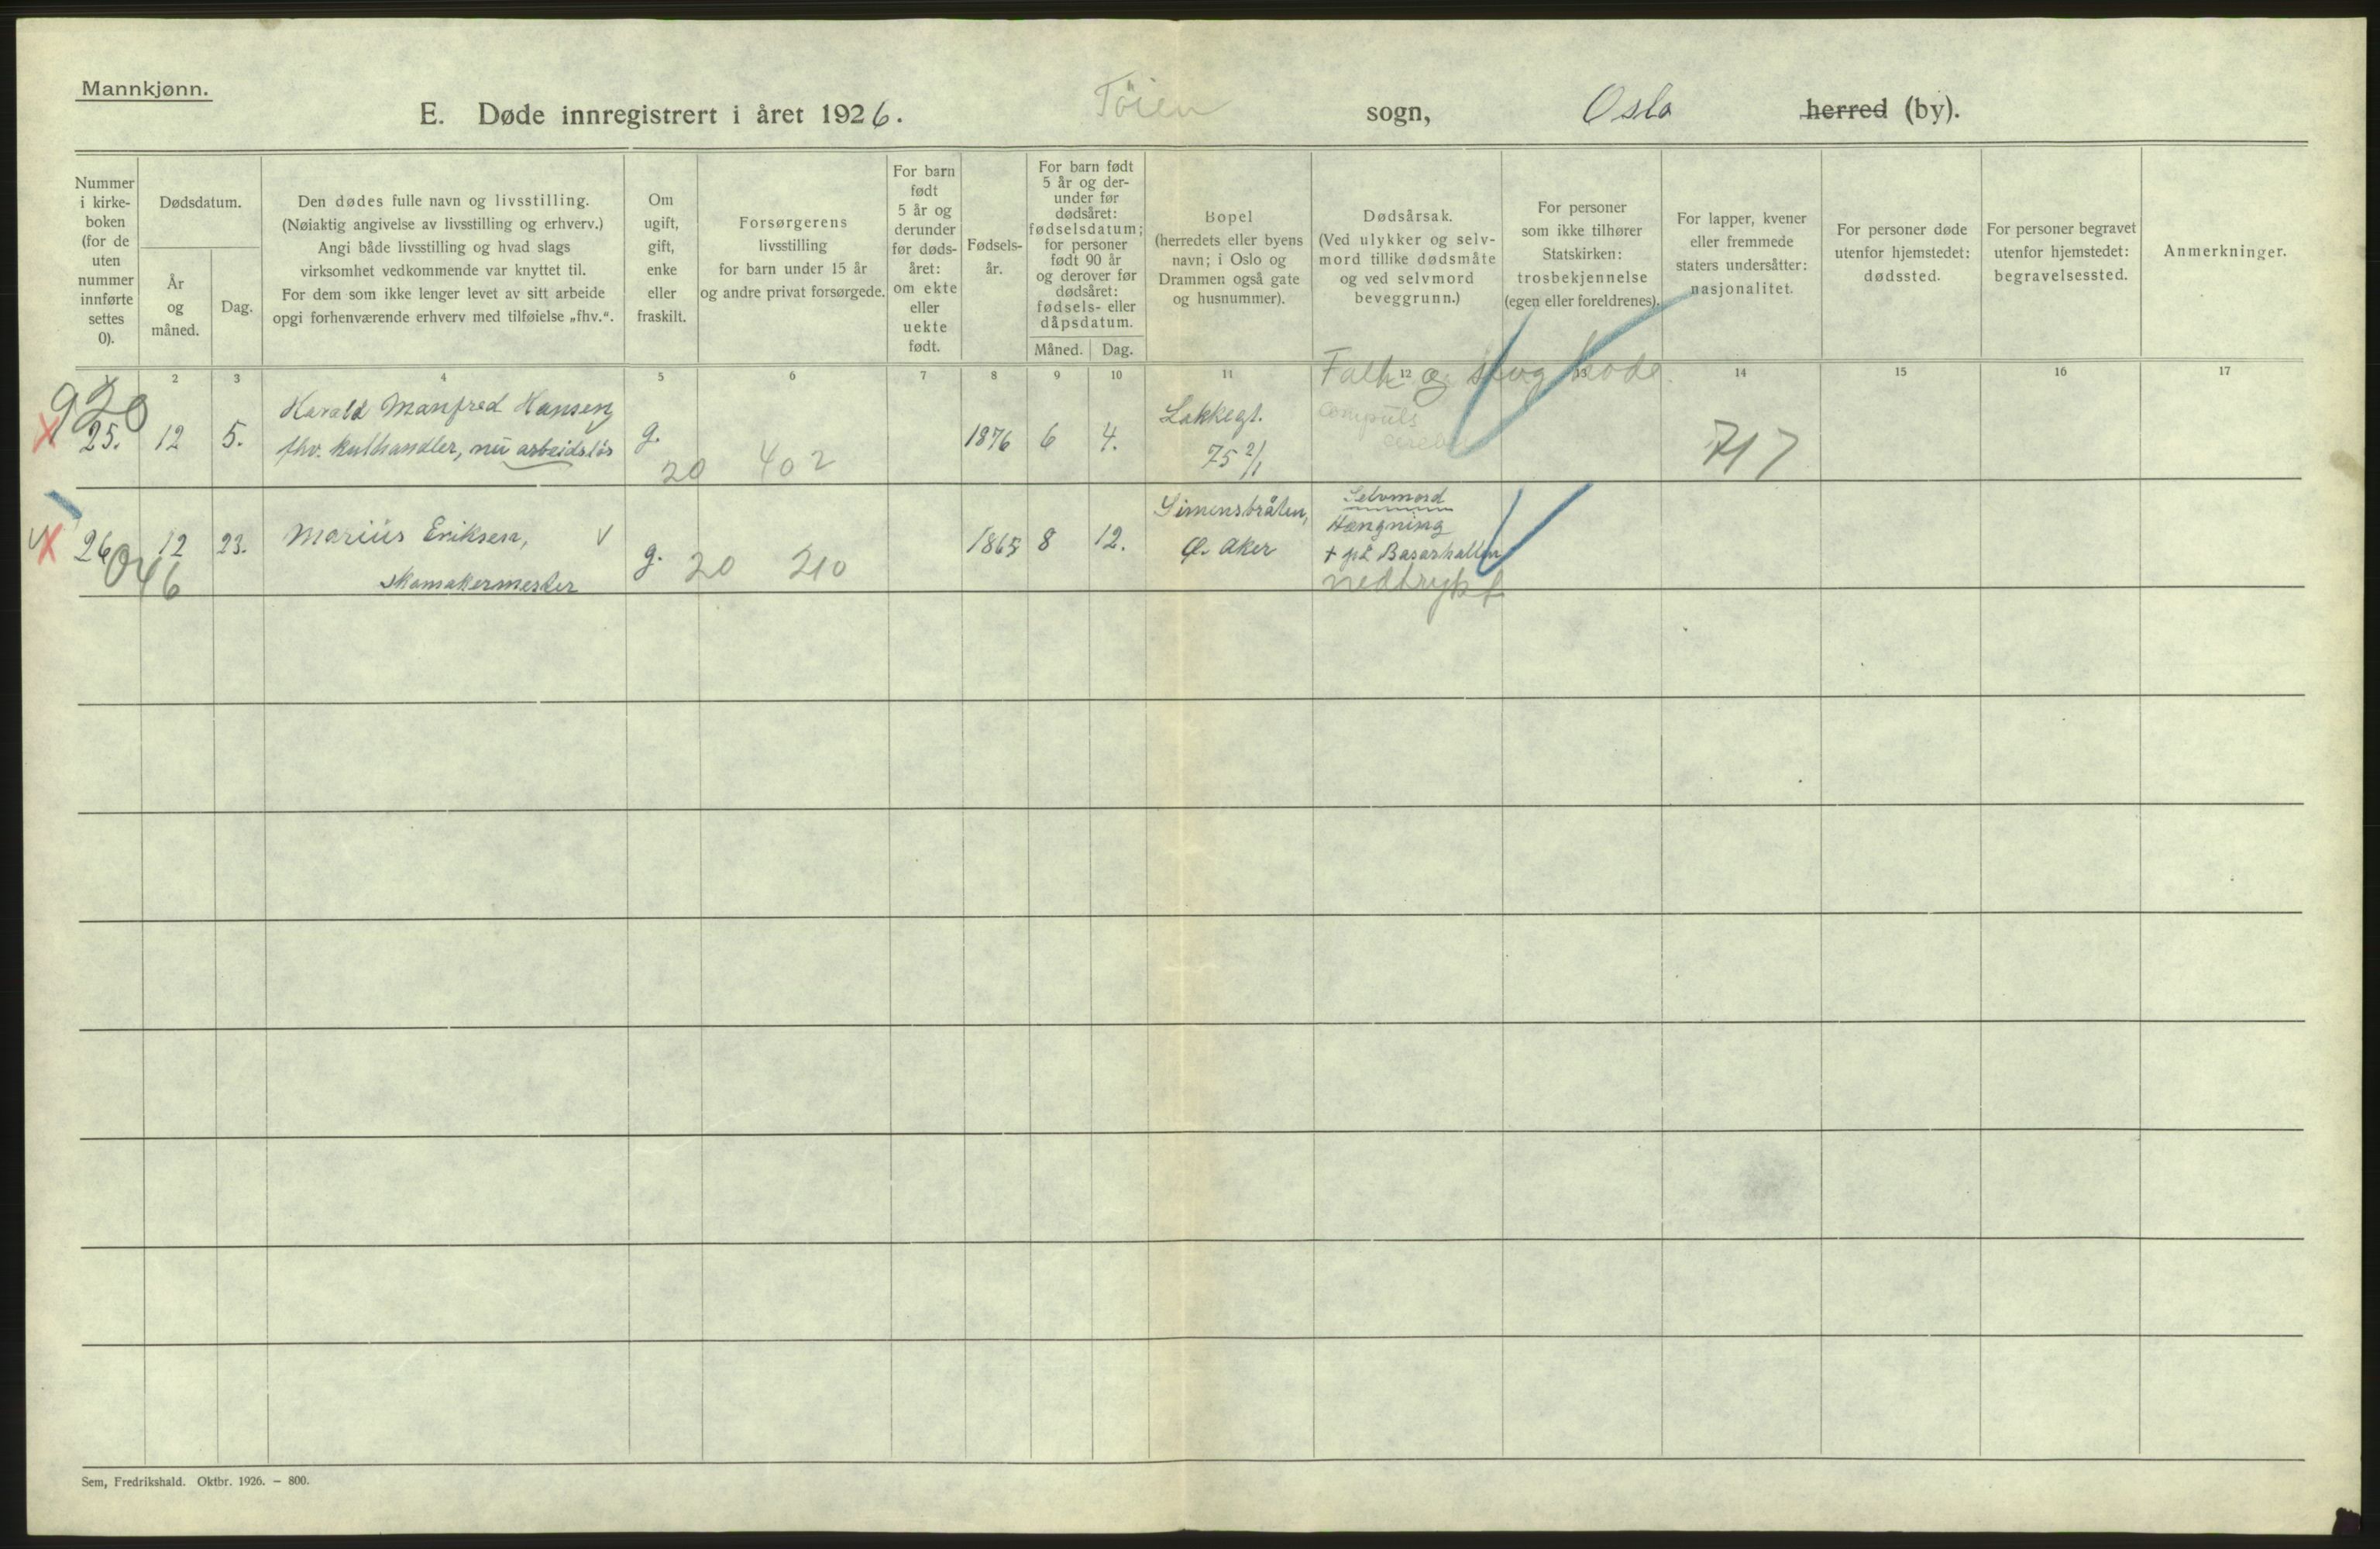 Mannkjønn.
E. Døde innregistrert i året 1926. Tøien sogn, Oslo herred (by).
Nummer i kirke- boken (for de uten nummer innførte settes 0).
Dødsdatum.
År og måned.
Dag.
Den dødes fulle navn og livsstilling.
(Nøiaktig angivelse av livsstilling og erhverv.)
Angi både livsstilling og hvad slags
virksomhet vedkommende var knyttet til.
For dem som ikke lenger levet av sitt arbeide
opgi forhenværende erhverv med tilføielse „fhv.“.
Om ugift, gift, enke eller fraskilt.
Forsørgerens
livsstilling
for barn under 15 år
og andre privat forsørgede.
For barn født 5 år og derunder før døds- året: om ekte eller uekte født.
Fødsels- år.
For barn født
5 år og der-
under før
dødsåret:
fødselsdatum;
for personer
født 90 år
og derover før
dødsåret:
fødsels- eller
dåpsdatum.
Måned. Dag.
Bopel
(herredets eller byens
navn; i Oslo og
Drammen også gate
og husnummer).
Dødsårsak.
(Ved ulykker og selv-
mord tillike dødsmåte
og ved selvmord
beveggrunn.)
For personer
som ikke tilhører
Statskirken:
trosbekjennelse
(egen eller foreldrenes).
For lapper, kvener
eller fremmede
staters undersåtter:
nasjonalitet.
For personer døde
utenfor hjemstedet:
dødssted.
For personer begravet
utenfor hjemstedet:
begravelsessted.
Anmerkninger.
1 2 3 4 5 6 7 8 9 10 11 12 13 14 15 16 17
920
25. 12 5.
Harald Manfred Hansen
fhv. kulhandler, nu arbeidsløs
g. 20 402
1876 6 4.
Lakkegt.
75 2/1
Falh og slog hode.
717
26 12 23.
046
Marius Eriksen, v
skomakermester
g. 20 210
1865 8 12.
Simensbråten,
Ø. Aker
Selvmord
Hængning
+ på Basarhallen
nedtrykt
Sem, Fredrikshald. Oktbr. 1926. – 800.